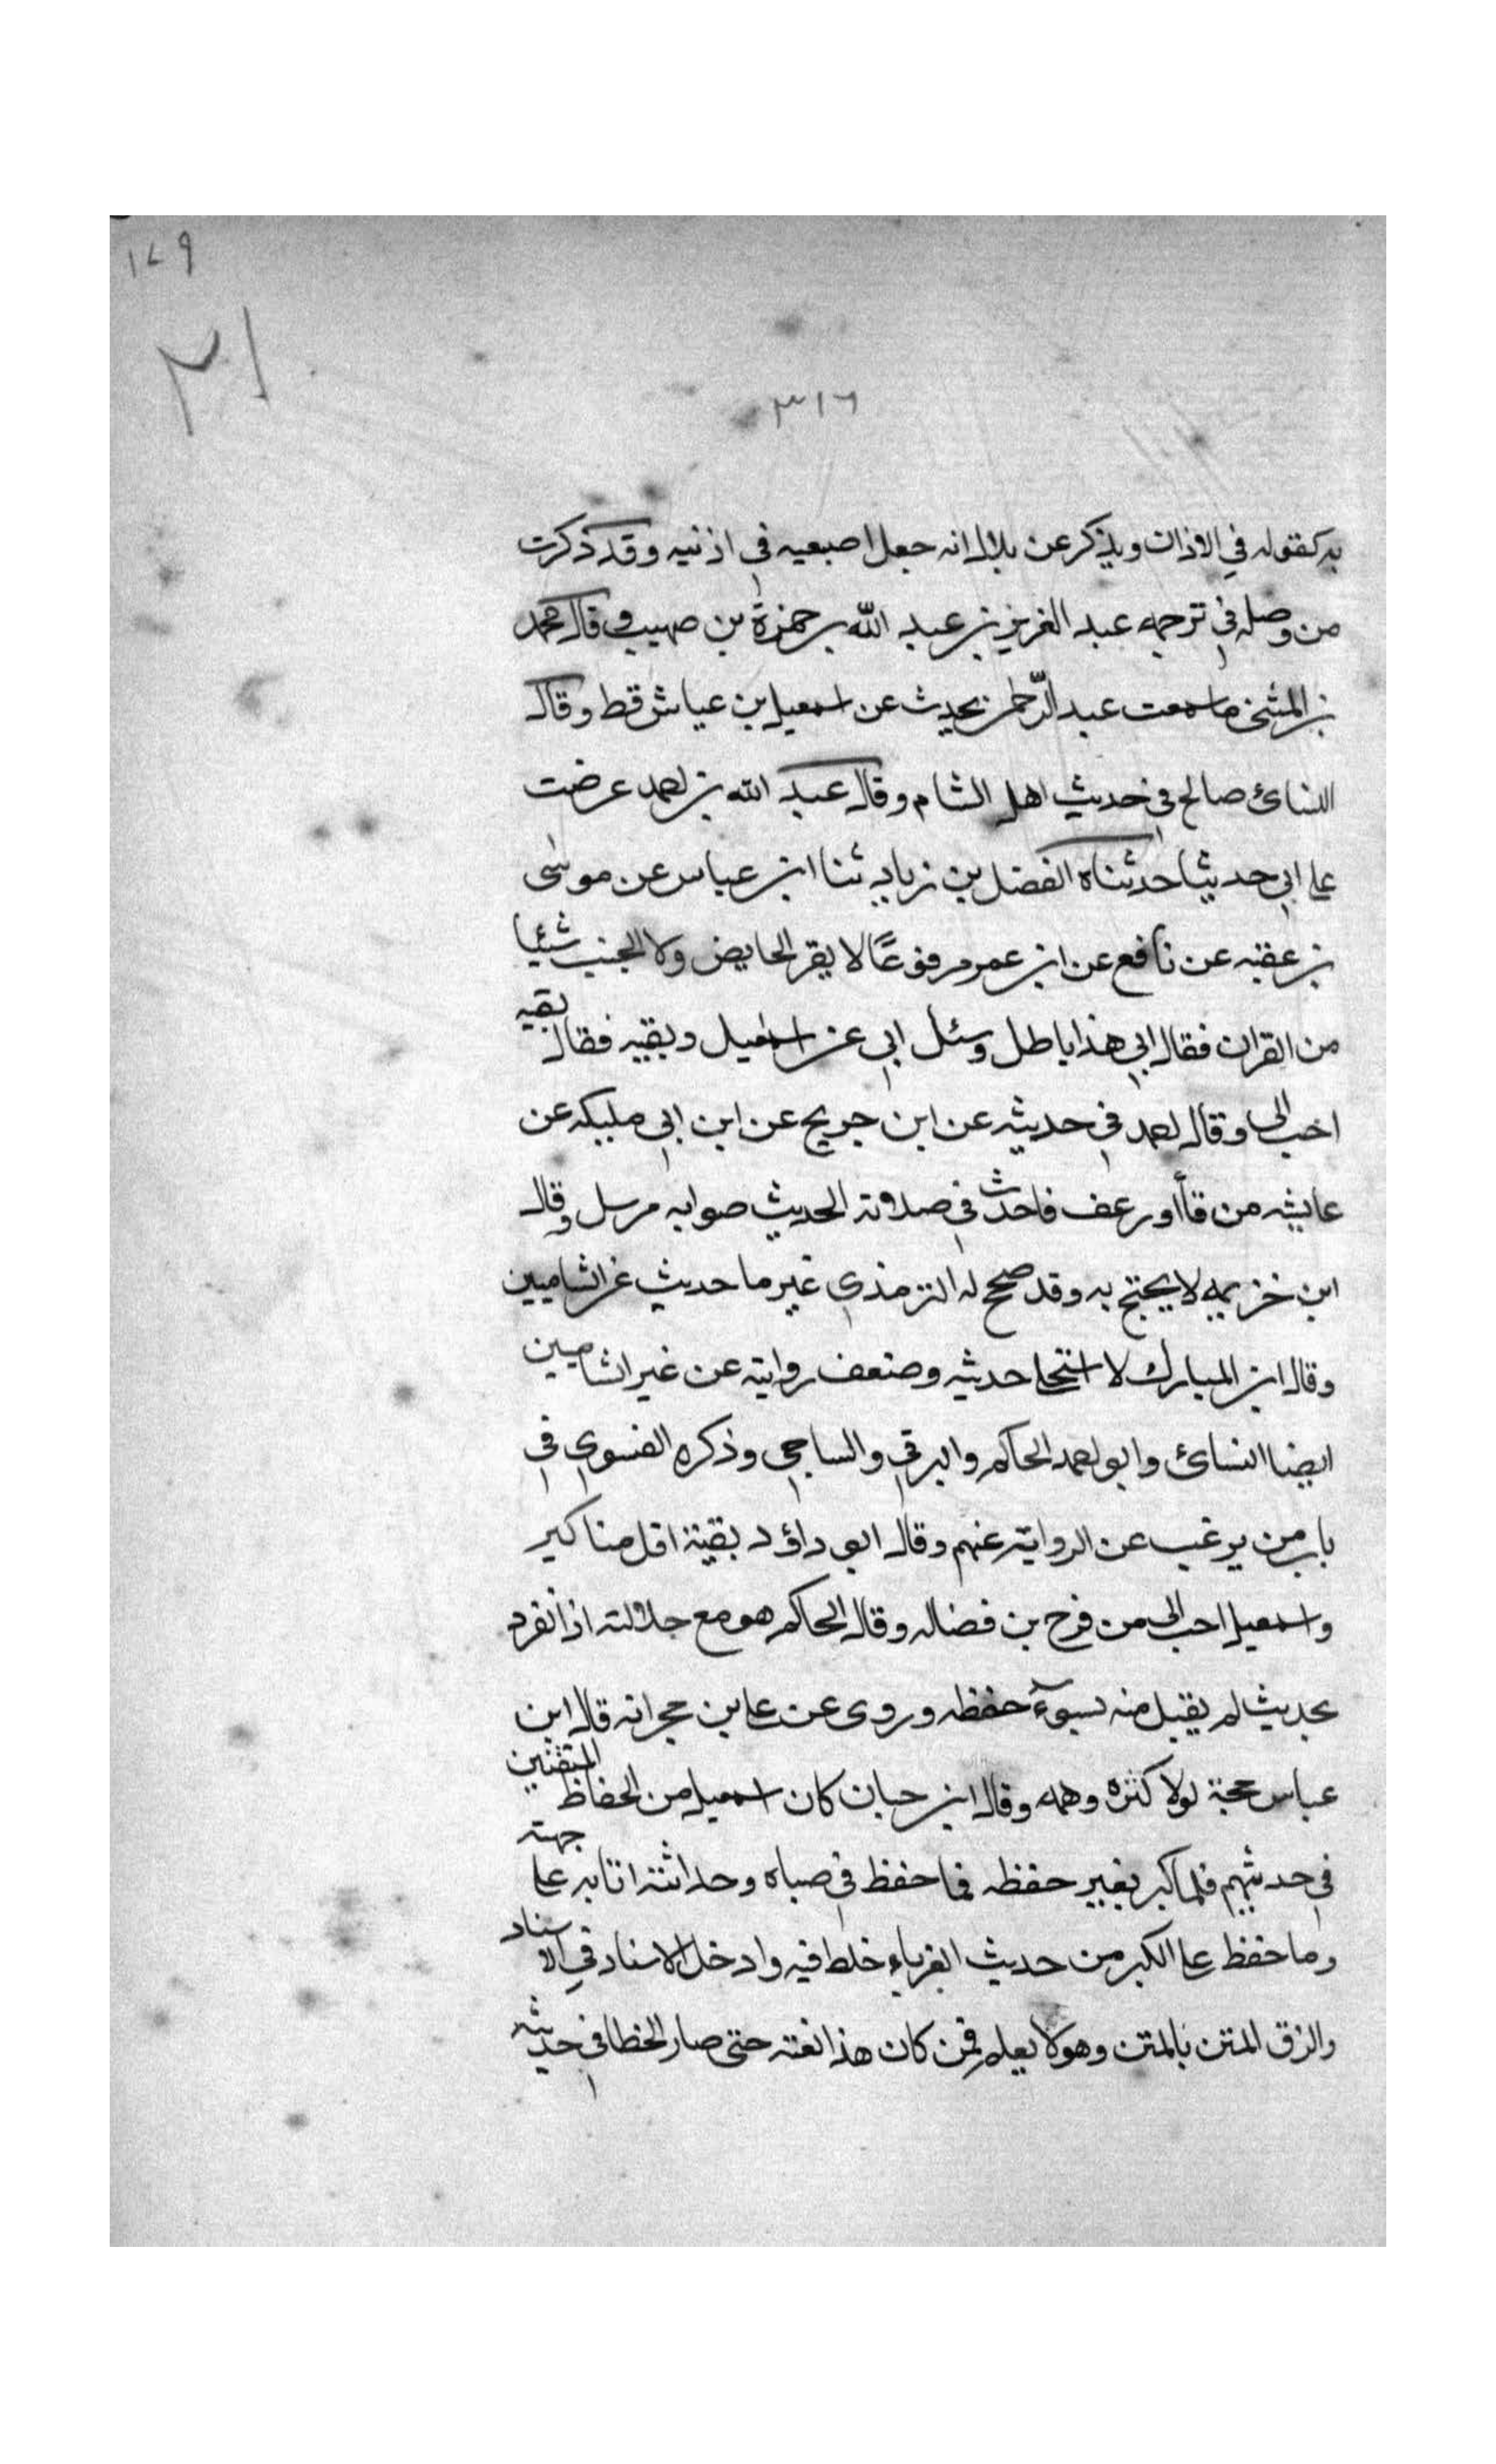 ١٧٩
٣١
٣١٦
به كقوله في الاذان ويذكر عن بلال انه جعل اصبعيه في اذنيه وقد ذكرت
من وصله في ترجمه عبد العزيز بن عبيد الله بن حمزة بن صهيب وقال محمد
بن المثنى ما سمعت عبد الرحمن يحدث عن اسمعيل بن عياش قط وقال
النسائ صالح في حديث اهل الشام وقال عبد الله بن احمد عرضت
على ابي حديثا حدثناه الفضل بن زياد ثنا ابن عياس عن موسى
بن عقبه عن نافع عن ابن عمر مرفوعًا لا يقر الحايض ولا الجنب شئيا
من القران فقال ابي هذا باطل وسئل ابي عن اسمعيل وبقيه فقال بقيه
احب الى وقال احمد في حديثه عن ابن جريج عن ابن ابي مليكه عن
عايشه من قاأ اورعف فاحدث في صلاته الحديث صوابه مرسل وقال
ابن خزيمه لا يحتج به وقد صحح له الترمذي غير ما حديث عن الشاميين
وقال ابن المبارك لا استحلى حديثه وضعف روايته عن غير الشاميين
ايضا النسائ وابو احمد الحاكم والبرقي والساجي وذكره الفسوي في
باب من يرغب عن الرواية عنهم وقال ابو داؤد بقية اقل مناكير
واسمعيل احب الى من فرج بن فضاله وقال الحاكم هو مع جلالته اذا انفرد
بحديث لم يقبل منه لسوء حفظه وروى عن على بن حجر انه قال ابن
عياس حجة لولا كثره وهمه وقال ابن حبان كان اسمعيل من الحفاظ المتقنين
في حديثهم فلما كبر تغيير حفظه فما حفظ في صباه وحداثته اتا به على جهته
وما حفظ على الكبر من حديث الغرباء خلط فيه وادخل الاسناد في الاسناد
والزق المتن بالمتن وهو لا يعلم فمن كان هذا نعته حتى صار الخطا في حديثه